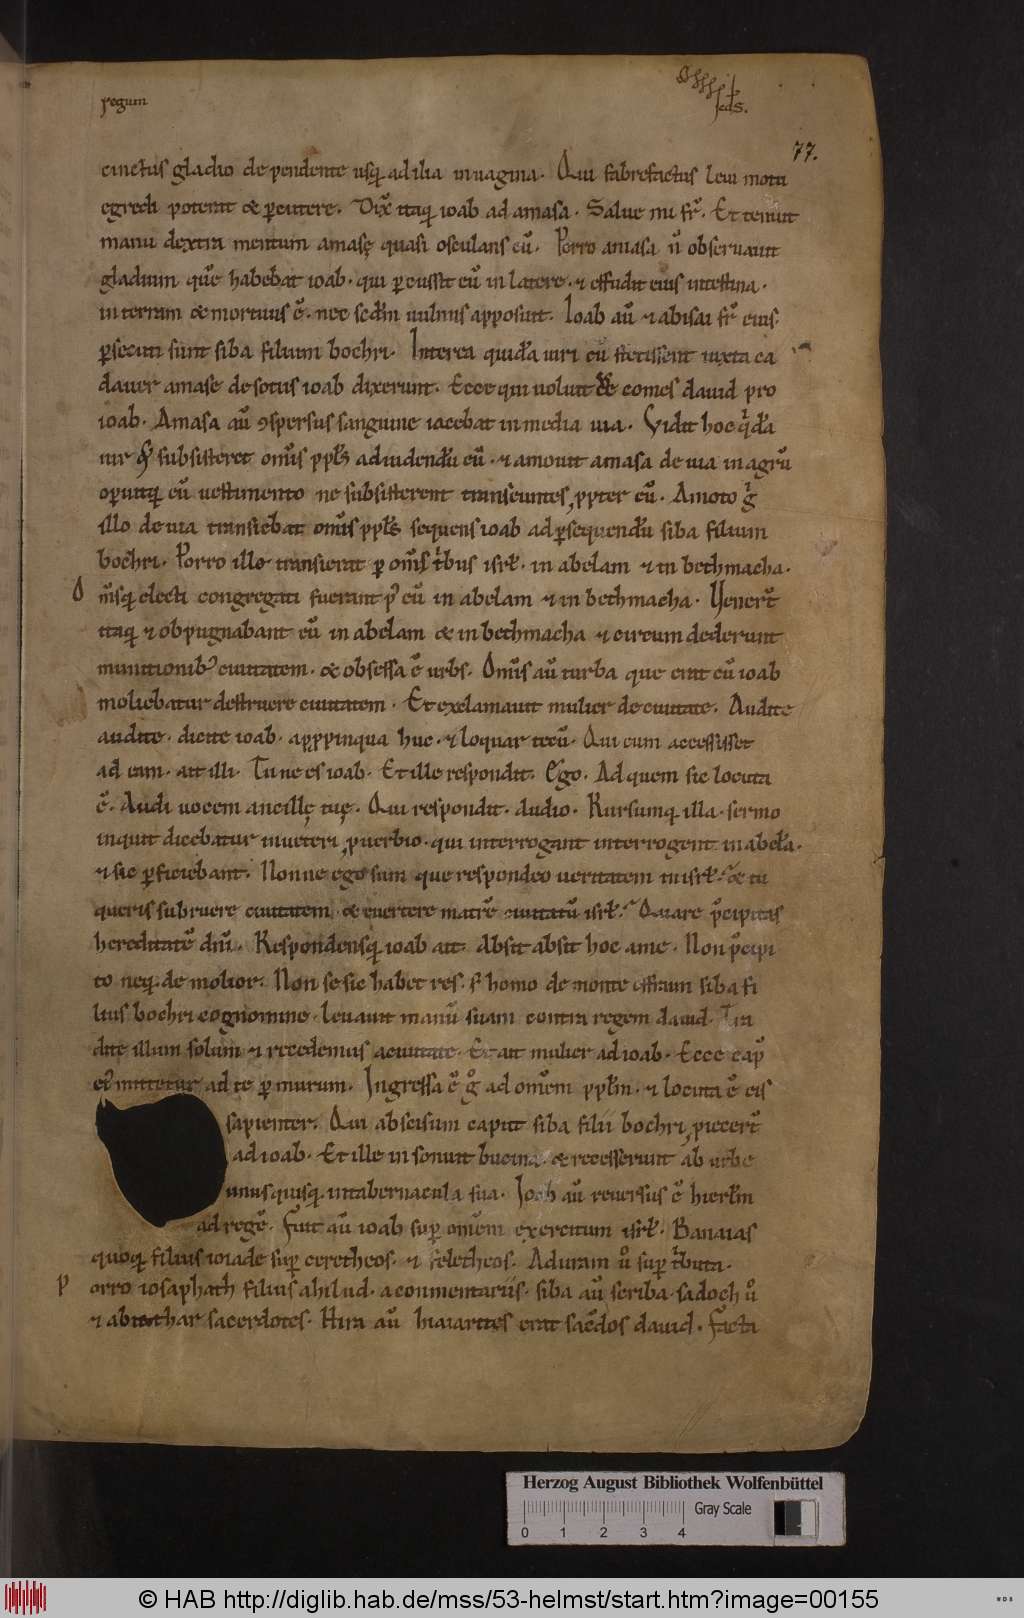 regum
seds.
77.
cinctus gladio de pendente usq; ad ilia in uagina. Qui fabrefactus leui motu
egredi poterat & p̄cutere. Dix̄ itaq; ioab ad amasa. Salue mi fr̄. Et tenuit
manu dextra mentum amasę quasi osculans eū. Porro amasa n̄ obseruauit
gladium quē habebat ioab. qui p̄cussit eū in latere. ⁊ effudit eius intestina.
in terram & mortuus ē. nec secdm uulnus apposuit. Ioab aū ⁊ abisai fr̄ eius.
p̄secuti sunt siba filium bochri. Interea quida uiri cū stetissent iuxta ca
dauer amase de sotus ioab dixerunt. Ecce qui uoluit comes dauid pro
ioab. Amasa aū ꝯspersus sanguine iacebat in media uia. Vidit hoc qda
uir qd subsisteret om̄is pplṡ ad uidendū eū. ⁊ amouit amasa de uia in agrū
opuitq; eū uestimento ne subsisterent transeuntes ꝓpter eū. Amoto g̊
illo de uia transiebat om̄is pplṡ sequens ioab ad p̄sequendū siba filium
bochri. Porro ille transierat p om̄s tbus isrł. in abelam ⁊ in bethmacha.
O m̄sq; electi congregati fuerant p̄ eū in abelam ⁊ in bethmacha. Venert̄
itaq; ⁊ obpugnabant eū in abelam & in bethmacha ⁊ circum dederunt
munitionib; ciuitatem. & obsessa ē urbs. Om̄is aū turba que erat cū ioab
moliebatur destruere ciuitatem. Et exclamauit mulier de ciuitate. Audite
audite. dicite ioab. appꝓinqua huc. ⁊ loquar tecū. Qui cum accessisset
ad eam. ait illi. Tu ne es ioab. Et ille respondit. Ego. Ad quem sic locuta
ē. Audi uocem ancillę tuę. Qui respondit. Audio. Rursumq; illa. sermo
inquit dicebatur in ueteri ꝓuerbio. qui interrogant interrogent in abela.
⁊ sic p̄ficiebant. Nonne ego sum que respondeo ueritatem in isrł. & tu
queris subruere ciuitatem. & euertere matrē ciuitatū isrł. Quare p̄cipitas
hereditatē dn̄i. Respondensq; ioab ait. Absit absit hoc a me. Non p̄cipi
to neq; de molior. Non se sic habet res. s; homo de monte effraim siba fi
lius bochri cognomine. leuauit manū suam contra regem dauid. Tra
dite illum solum ⁊ recedemus a ciuitate. Et ait mulier ad ioab. Ecce cap̄
ei mittetur ad te p murum. Ingressa ē g̊ ad om̄em pplm̄. ⁊ locuta ē eis
sapienter. Qui abscisum caput siba filii bochri ꝓiecert̄
ad ioab. Et ille in sonuit bucina. & recesserunt ab urbe
unusquisq; in tabernacula sua. Ioab aū reuersus ē hierłm
ad regē. Fuit aū ioab sup om̄em exercitum isrł. Banaias
quoq; filius ioiade sup ceretheos. ⁊ feletheos. Aduram ů sup tbuta.
P orro iosaphath filius ahilud. a commentariis. siba aū scriba. sadoch ů
⁊ abiathar sacerdotes. Hira aū hiaiarites erat sac̄dos dauid. Facta
Herzog August Bibliothek Wolfenbüttel
Gray Scale
0 1 2 3 4
© HAB http://diglib.hab.de/mss/53-helmst/start.htm?image=00155